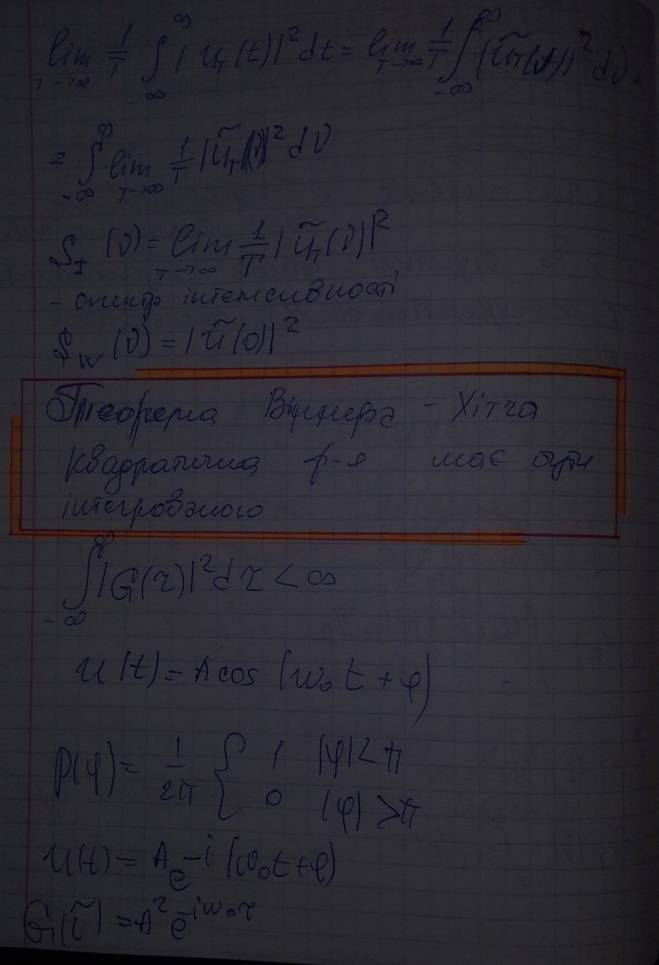 lim_{T→∞} 1/T ∫_{-∞}^{∞} |u_T(t)|² dt = lim_{T→∞} 1/T ∫_{-∞}^{∞} |ũ_T(ν)|² dν =
= ∫_{-∞}^{∞} lim_{T→∞} 1/T |ũ_T(ν)|² dν
S_I (ν) = lim_{T→∞} 1/T |ũ_T(ν)|²
- спектр інтенсивності
S_W (ν) = |ũ(ν)|²
Теорема Вінчера - Хітча
Квадратична ф-я має бути
інтегрованою
∫_{-∞}^{∞} |G(τ)|² dτ < ∞
u(t) = A cos (ω₀ t + φ)
P(φ) = 1/2π { 1 |φ| < π
0 |φ| > π
u(t) = A e^{-i(ω₀t+φ)}
G(τ) = A² e^{-iω₀τ}